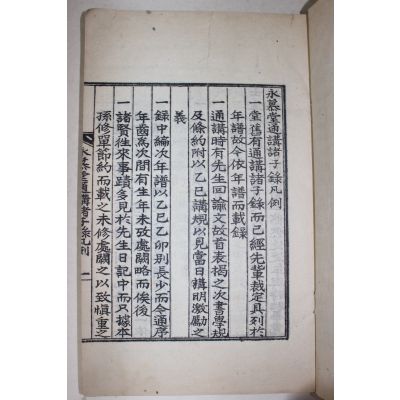 永慕堂通講諸子錄凡例
一堂舊有通講諸子錄而已經先輩裁定具列於
年譜故今依年譜而載錄
一通講時有先生回諭文故首表楬之次書學規
及條約附以乙巳講規以見當日講明激勵之
義
一錄中編次年譜以乙巳乙卯別長少而今通序
年齒爲次間有生年未攷處闕略而俟後
一諸賢往來事蹟多見於先生日記中而只據本
孫修單節約而載之未修處闕之以致愼重之
永慕堂通講諸子錄凡例 一